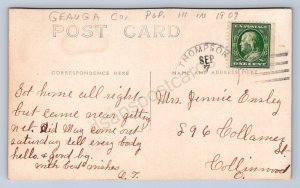 GEAUGA Co, POP. 111 in 1909
POST CARD
THOMPSON
SEP
7
U.S. POSTAGE
ONE CENT
CORRESPONDENCE HERE
NAME AND ADDRESS HERE
Got home all right,
but came near getting
wet. Did May come out
saturday tell every body
hello & good by.
with best wishes
Mrs. Jennie Ensley
596 Collamer
St
Collinwood